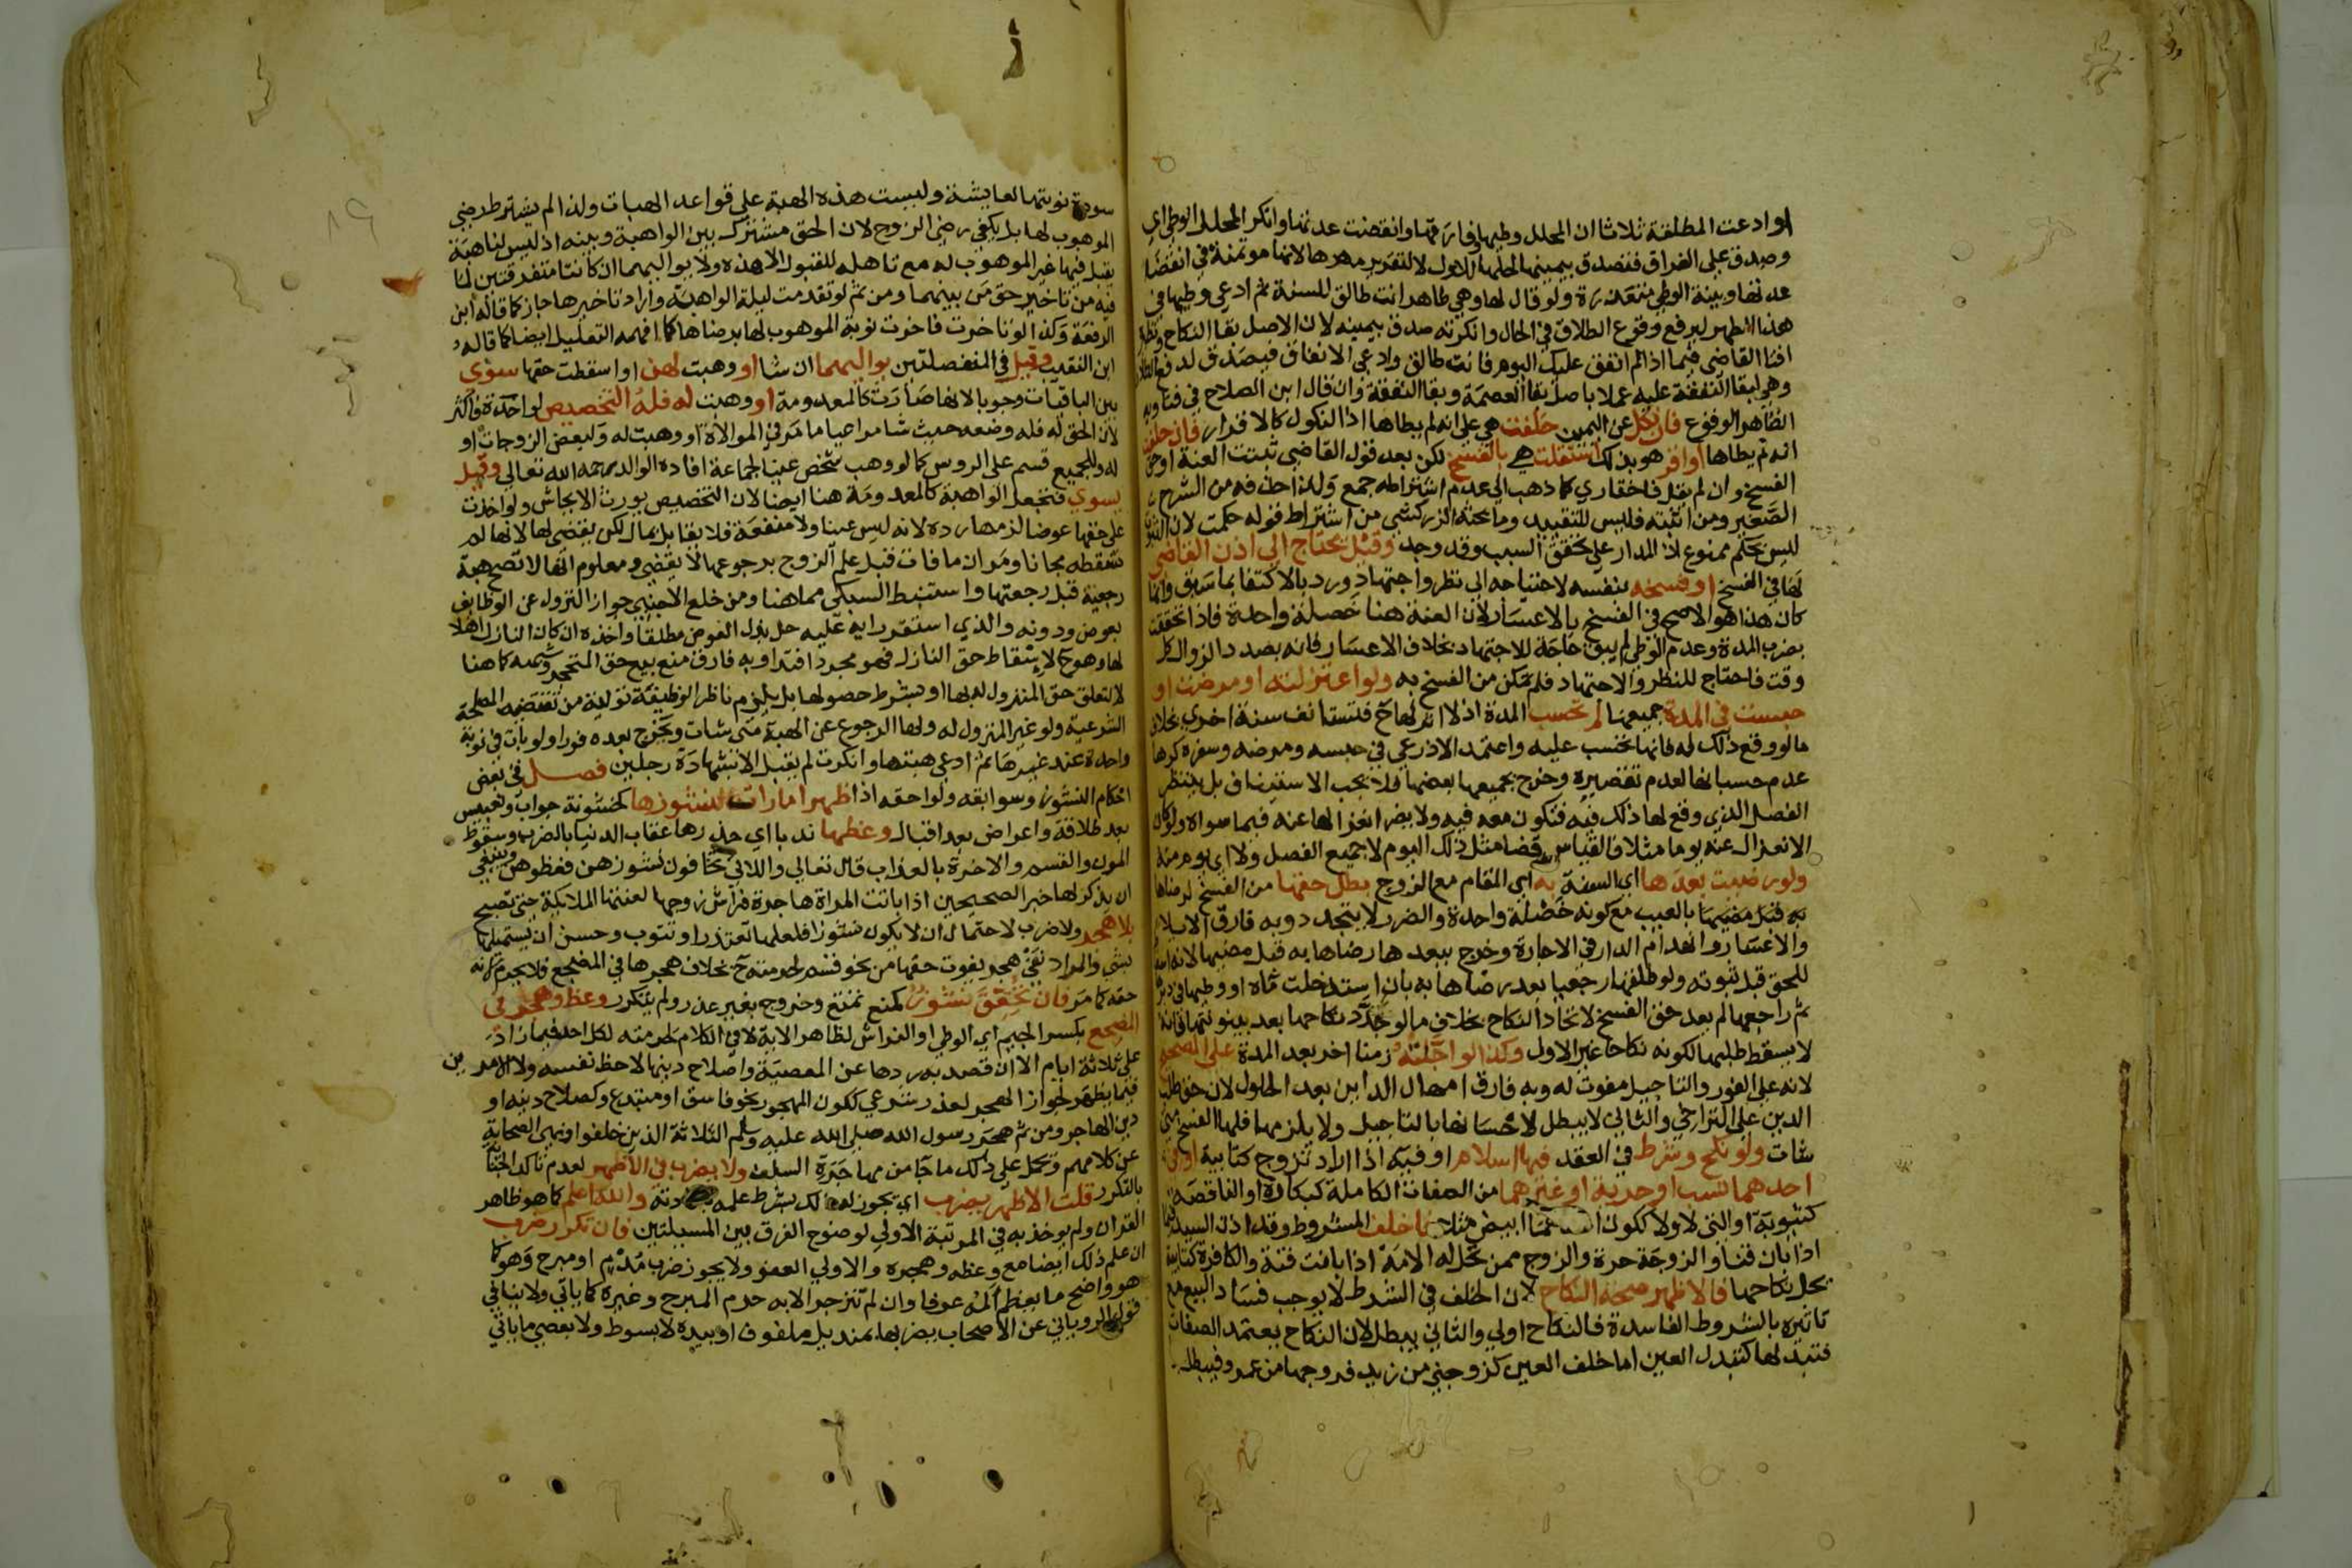 او ادعت المطلقة ثلاثا ان المحلل وطيها وفارقها وانقضت عدتها وانكر المحلل الوطي اي
وصدق على الفراق فتصدق بيمينها لحلها للاول لا لتقرير مهرها لانها موتمنة في انقضا
عدتها وبينة الوطي متعذرة ولو قال لها وهي طاهر انت طالق للسنة ثم ادعى وطيها في
هذا الطهر ليرفع وقوع الطلاق في الحال وانكرته صدق بيمينه لان الاصل بقا النكاح
افتا القاضي فيما اذا لم انفق عليك اليوم فانت طالق وادعى الانفاق فيصدق لدفع
وهو لبقا النفقة عليه عملا باصل بقا العصمة وبقا النفقة وان قال ابن الصلاح في فتاويه
الظاهر الوقوع فان نكل عن اليمين حلفت هي على انه لم يطاها اذ النكول كالاقرار فان حلفت
انه لم يطاها او اقر هو بذلك استقلت هي بالفسخ لكن بعد قول القاضي ثبتت العنة او حق
الفسخ وان لم يقل فاختاري كما ذهب الى عدم اشتراطه جمع ولذا حذفه من الشرح
الصغير ومن اثبته فليس للتقييد وما بحثه الزركشي من اشتراط قوله حكمت لان
ليس بحكم ممنوع اذ المدار على تحقق السبب وقد وجد وقيل يحتاج الى اذن القاضي
لها في الفسخ او فسخه بنفسه لاحتياجه الى نظر واجتهاد ورد بالاكتفا بما سبق وانما
كان هذا هو الاصح في الفسخ بالاعسار لان العنة هنا خصلة واحدة فاذا تحققت
بضرب المدة وعدم الوطي لم يبق حاجة للاجتهاد بخلاف الاعسار فانه بصدد الزوال كل
وقت فاحتاج للنظر والاجتهاد فلم تمكن من الفسخ به ولو اعتزلته او مرضت او
حبست في المدة جميعها لم تحسب المدة اذ لا اثر لها ح فتستانف سنة اخرى بخلاف
ما لو وقع ذلك له فانها تحسب عليه واعتمد الاذرعي في حبسه ومرضه وسفره كرها
عدم حسبانها لعدم تقصيره وخرج بجميعها بعضها فلا يجب الاستيناف بل ينتظر
الفصل الذي وقع لها ذلك فيه فتكون معه فيه ولا يضر انعزالها عنه فيما سواه ولو كان
الانعزال عنه يوما مثلا فالقياس قضا مثل ذلك اليوم لا جميع الفصل ولا اي يوم منه
ولو رضيت بعدها اي السنة به اي المقام مع الزوج بطل حقها من الفسخ لرضاها
به قبل مضيها بالعيب مع كونه خصلة واحدة والضرر لا يتجدد وبه فارق الايلا
والاعسار وانهدام الدار في الاجارة وخرج ببعدها رضاها به قبل مضيها لانه
للحق قبل ثبوته ولو طلقها رجعيا بعد رضاها به بان استدخلت ماه او وطيها في دبرها
ثم راجعها لم يعد حق الفسخ لاتحاد النكاح بخلاف ما لو جدد نكاحها بعد بينونتها فانه
لا يسقط طلبها لكونه نكاحا غير الاول وكذا لو اجلته زمنا اخر بعد المدة على الصحيح
لانه على الفور والتاجيل مفوت له وبه فارق امهال الداين بعد الحلول لان حق طلب
الدين على التراخي والثاني لا يبطل لاحسانها بالتاجيل ولا يلزمها فلها الفسخ متى
شات ولو نكح وشرط في العقد فيها اسلام او فيه اذا اراد تزوج كتابية او في
احدهما نسب او حرية او غيرهما من الصفات الكاملة كبكارة او الناقصة
كثيوبة او التي لا ولا ككون احدهما ابيض مثلا فاخلف المشروط وقد اذن السيد
اذا بان قنا والزوجة حرة والزوج ممن تحل له الامة اذا بانت قنة والكافرة كتابية
تحل نكاحها فالاظهر صحة النكاح لان الخلف في الشرط لا يوجب فساد البيع مع
تاثيره بالشروط الفاسدة فالنكاح اولى والثاني يبطل لان النكاح يعتمد الصفات
فتبدلها كتبدل العين اما خلف العين كزوجني من زيد فزوجها من عمرو فيبطل
سودة نوبتها لعايشة وليست هذه الهبة على قواعد الهبات ولذا لم يشترط رضى
الموهوب لها بل يكفي رضى الزوج لان الحق مشترك بين الواهبة وبينه اذ ليس لنا هبة
يقبل فيها غير الموهوب له مع تاهله للقبول الا هذه ولا يواليهما ان كانتا متفرقتين لما
فيه من تاخير حق من بينهما ومن ثم لو تقدمت ليلة الواهبة وارادتا تاخيرها جاز كما قاله ابن
الرفعة وكذا لو تاخرت فاخرت نوبة الموهوب لها برضاها كما افهمه التعليل ايضا كما قاله
ابن النقيب وقيل في المنفصلتين يواليهما ان شا او وهبت لهن او اسقطت حقها سوى
بين الباقيات وجوبا لانها صارت كالمعدومة او وهبت له فله التخصيص لواحدة فاكثر
لان الحق له فله وضعه حيث شا مراعيا ما مر في الموالاة او وهبت له ولبعض الزوجات او
له وللجميع قسم على الروس كما لو وهب شخص عينا لجماعة افاده الوالد رحمه الله تعالى وقيل
يسوي فتجعل الواهبة كالمعدومة هنا ايضا لان التخصيص يورث الايحاش ولو اخذت
على حقها عوضا لزمها رده لانه ليس عينا ولا منفعة فلا يقابل بمال لكن يقضي لها لانها لم
تسقطه مجانا ومر ان ما فات قبل علم الزوج برجوعها لا يقضي ومعلوم انها لا تصح هبة
رجعية قبل رجعتها واستنبط السبكي مما هنا ومن خلع الاجنبي جواز النزول عن الوظايف
بعوض ودونه والذي استقر رايه عليه حل بذل العوض مطلقا واخذه ان كان النازل اهلا
لها وهو ح لاسقاط حق النازل فهو مجرد افتدا وبه فارق منع بيع حق المتحجر وشبهه كما هنا
لا لتعلق حق المنزول له بها او بشرط حصولها بل يلزم ناظر الوظيفة تولية من تقتضيه المصلحة
الشرعية ولو غير المنزول له ولها الرجوع عن الهبة متى شات وتخرج بعده فورا ولو بات في نوبة
واحدة عند غيرها ثم ادعى هبتها وانكرت لم يقبل الا بشهادة رجلين فصل في بعض
احكام النشوز وسوابقه ولواحقه اذا ظهر امارات نشوزها كخشونة جواب وتعبيس
بعد طلاقة واعراض بعد اقبال وعظها ندبا اي حذرها عقاب الدنيا بالضرب وسقوط
المون والقسم والاخرة بالعذاب قال تعالى واللاتي تخافون نشوزهن فعظوهن وينبغي
ان يذكر لها خبر الصحيحين اذا باتت المراة هاجرة فراش زوجها لعنتها الملايكة حتى تصبح
بلا هجر ولا ضرب لاحتمال ان لا يكون نشوزا فلعلها تعتذر او تتوب وحسن ان يستميلها
بشي والمراد نفي هجر يفوت حقها من نحو قسم لحرمته ح بخلاف هجرها في المضجع فلا يحرم لانه
حقه كما مر فان تحقق نشوز كمنع تمتع وخروج بغير عذر ولم يتكرر وعظ وهجر في
المضجع بكسر الجيم اي الوطي او الفراش لظاهر الاية لا في الكلام لحرمته لكل احد فيما زاد
على ثلاثة ايام الا ان قصد به ردها عن المعصية واصلاح دينها لا حظ نفسه ولا الامرين
فيما يظهر لجواز الهجر لعذر شرعي ككون المهجور نحو فاسق او مبتدع وكصلاح دينه او
دين الهاجر ومن ثم هجر رسول الله صلى الله عليه وسلم الثلاثة الذين خلفوا ونهى الصحابة
عن كلامهم وتحمل على ذلك ما جا من مهاجرة السلف ولا يضرب في الاظهر لعدم تاكد الجناية
بالتكرر قلت الاظهر يضرب اي يجوز له ذلك بشرط علمه والله اعلم كما هو ظاهر
القران ولم يوخذ به في المرتبة الاولى لوضوح الفرق بين المسيلتين فان تكرر ضرب
ان علم ذلك ايضا مع وعظه وهجره والاولى العفو ولا يجوز ضرب مدم او مبرح وهو كما
هو واضح ما يعظم المه عرفا وان لم تنزجر الا به حرم المبرح وغيره كما ياتي ولا ينافي
قول الروياني عن الاصحاب يضربها بمنديل ملفوف او بيده لا بسوط ولا بعصى ما ياتي